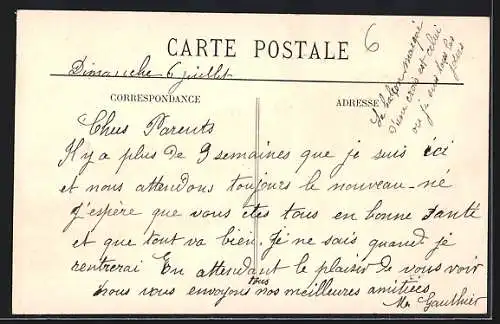 CARTE POSTALE
6
Dimanche 6 juillet
CORRESPONDANCE
ADRESSE
Le balcon marqué
d'une croix est celui
où je suis tous les
jours
Chers Parents
Il y a plus de 9 semaines que je suis ici
et nous attendons toujours le nouveau-né
J'espère que vous êtes tous en bonne santé
et que tout va bien. Je ne sais quand je
rentrerai En attendant le plaisir de vous voir
nous vous envoyons tous nos meilleures amitiés
Gauthier